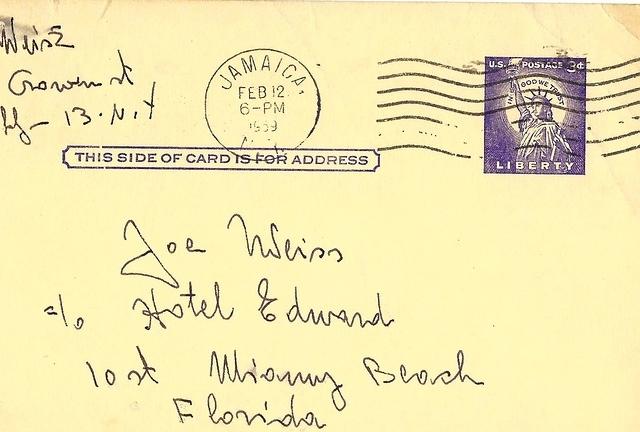 Weiss
Crown st
13. N.Y
JAMAICA,
FEB 12
6-PM
1959
N.Y.
U.S. POSTAGE 3¢
IN GOD WE TRUST
LIBERTY
THIS SIDE OF CARD IS FOR ADDRESS
Joe Weiss
c/o Hotel Edward
10 st Miamy Beach
Florida